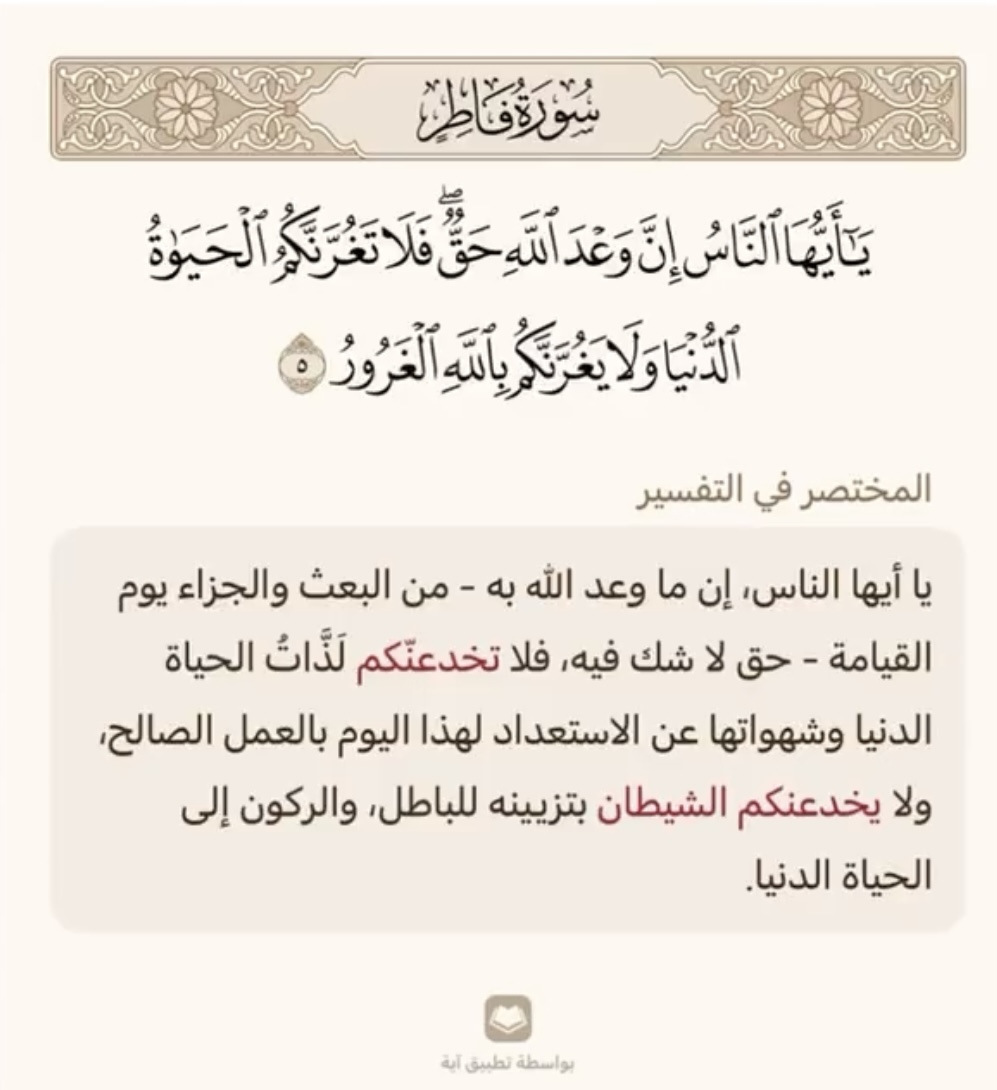 سُورَةُ فَاطِرٍ
يَٰٓأَيُّهَا ٱلنَّاسُ إِنَّ وَعْدَ ٱللَّهِ حَقٌّۖ فَلَا تَغُرَّنَّكُمُ ٱلْحَيَوٰةُ
ٱلدُّنْيَا وَلَا يَغُرَّنَّكُم بِٱللَّهِ ٱلْغَرُورُ ٥
المختصر في التفسير
يا أيها الناس، إن ما وعد الله به - من البعث والجزاء يوم
القيامة - حق لا شك فيه، فلا تخدعنّكم لَذَّاتُ الحياة
الدنيا وشهواتها عن الاستعداد لهذا اليوم بالعمل الصالح،
ولا يخدعنكم الشيطان بتزيينه للباطل، والركون إلى
الحياة الدنيا.
بواسطة تطبيق آية